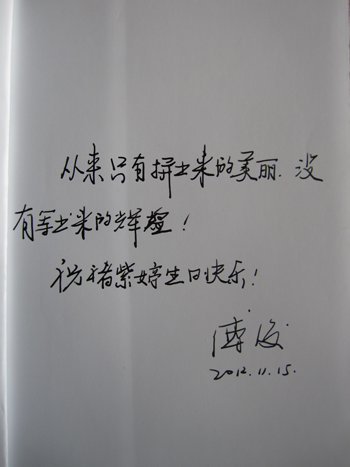 从来只有拼出来的美丽.没
有等出来的辉煌!
祝褚紫婷生日快乐!
2012.11.15.